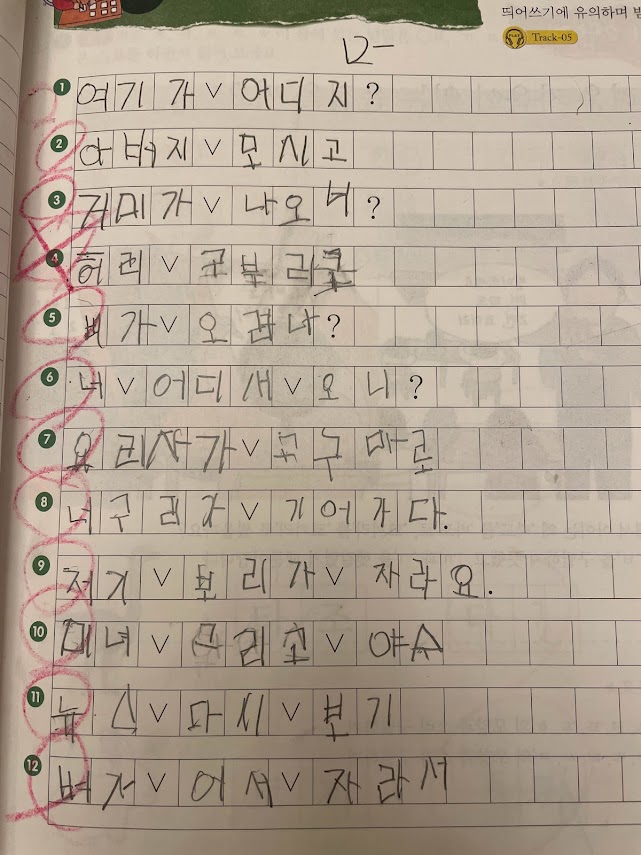 띄어쓰기에 유의하며
Track-05
1 여기가∨어디지?
2 아버지∨모시고
3 거미가∨나오너?
4 허리∨구부리
5 비가∨오려나?
6 너∨어디새∨오니?
7 요리사가∨고구마로
8 너구리가∨기어가다.
9 저기∨보리가∨자라요.
10 미녀∨우리∨야수
11 뉴스∨다시∨보기
12 버저∨어서∨자라서